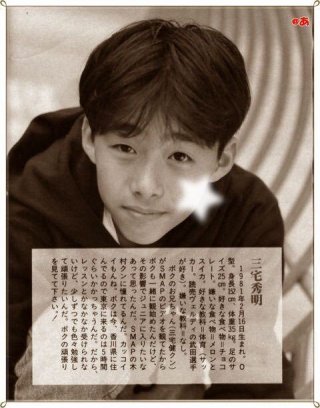 @あ
三宅秀明
1981年2月16日生まれ。O
型、身長152cm、体重35kg、足のサ
イズ25cm。好きな食べ物=チョコ
レート。嫌いな食べ物=メロン、
スイカ。好きな教科=体育(サッ
カー。読売ヴェルディの武田選手
が好き)。嫌いな教科=なし。
ボクのお兄ちゃん(三宅健クン)
がSMAPのビデオを観てたから
ボクも一緒に観始めたんだけど、
その影響でジュニアに入りたいな
あって思ったんだ。SMAPの木
村クンに憧れてるんだ。カッコイ
イもんね。ボクは今、香川県に住
んでるので東京に来るのは5時間
ぐらいかかっちゃうんだ。だから、
レッスンとかなかなか受けられな
いけど、少しずつでも色々勉強し
て頑張りたいんだ。ボクの頑張り
を見てて下さい!